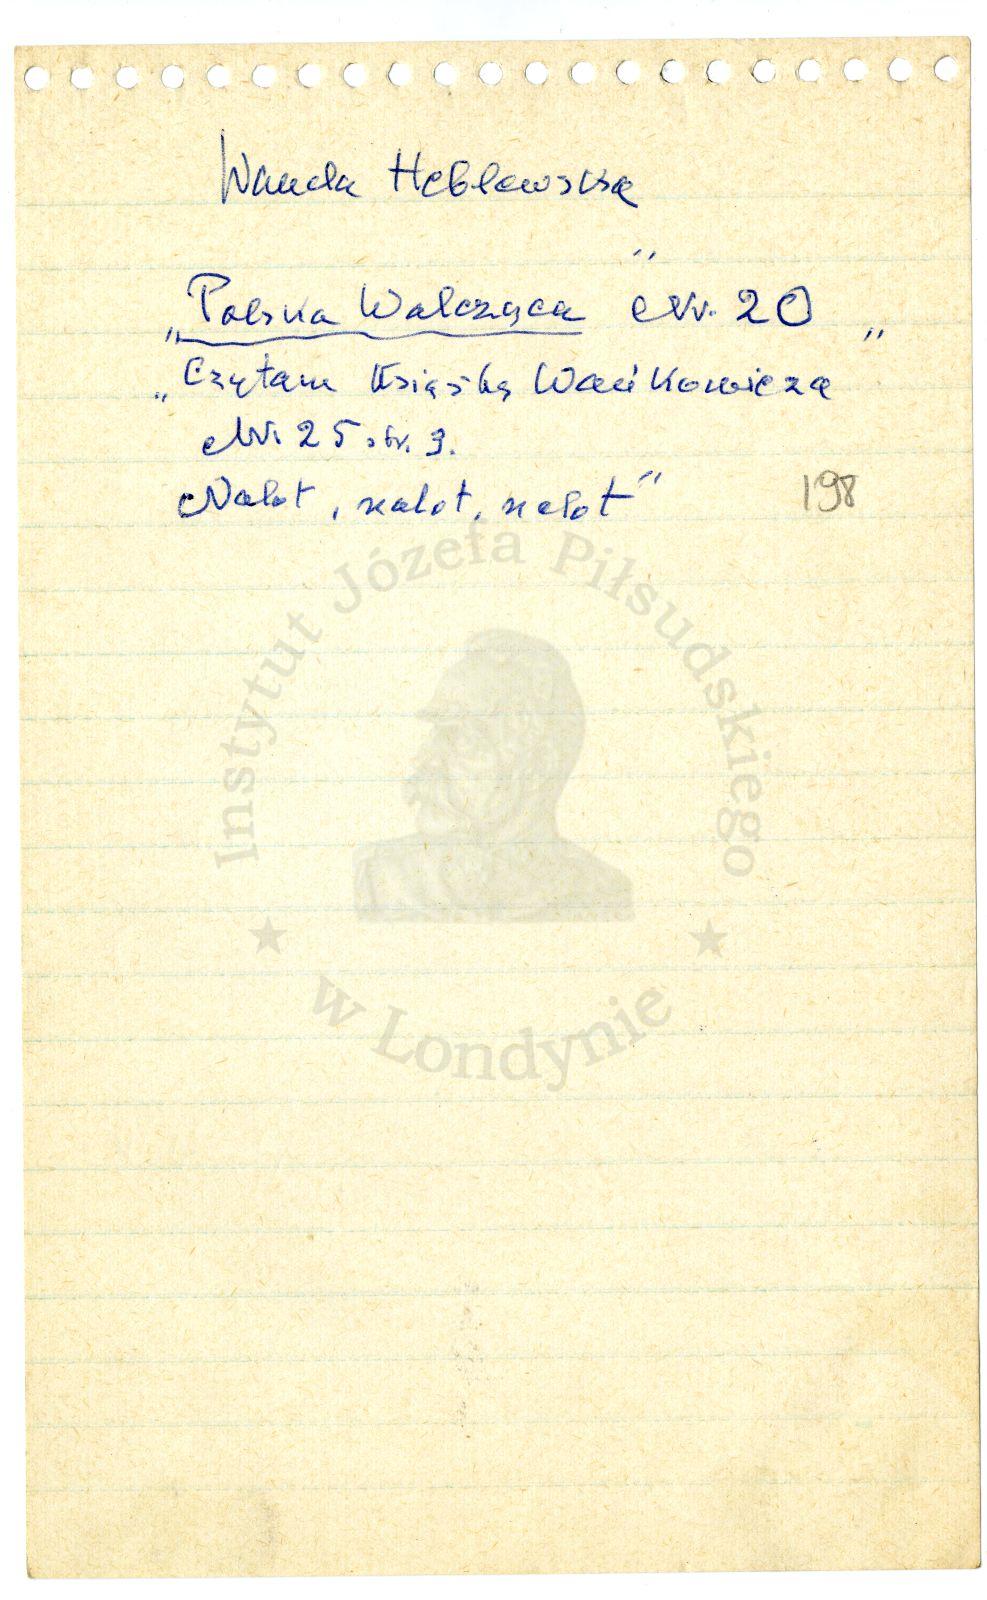 Wanda Heblewska
„Polska Walcząca" Nr. 20
„Czytam książkę Wańkowicza"
Nr. 25 str. 3.
Nalot, nalot, nalot"
198
Instytut Józefa Piłsudskiego
w Londynie